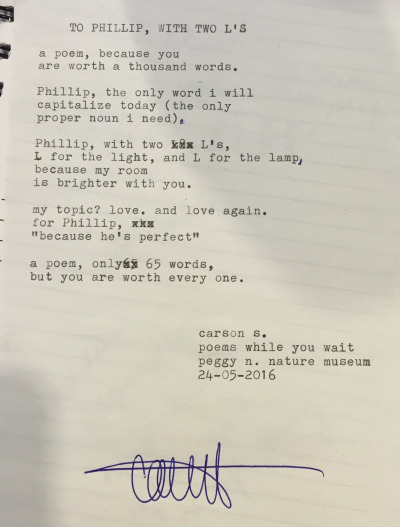 TO PHILLIP, WITH TWO L'S
a poem, because you
are worth a thousand words.
Phillip, the only word i will
capitalize today (the only
proper noun i need).
Phillip, with two L's,
L for the light, and L for the lamp,
because my room
is brighter with you.
my topic? love. and love again.
for Phillip,
"because he's perfect"
a poem, only 65 words,
but you are worth every one.
carson s.
poems while you wait
peggy n. nature museum
24-05-2016